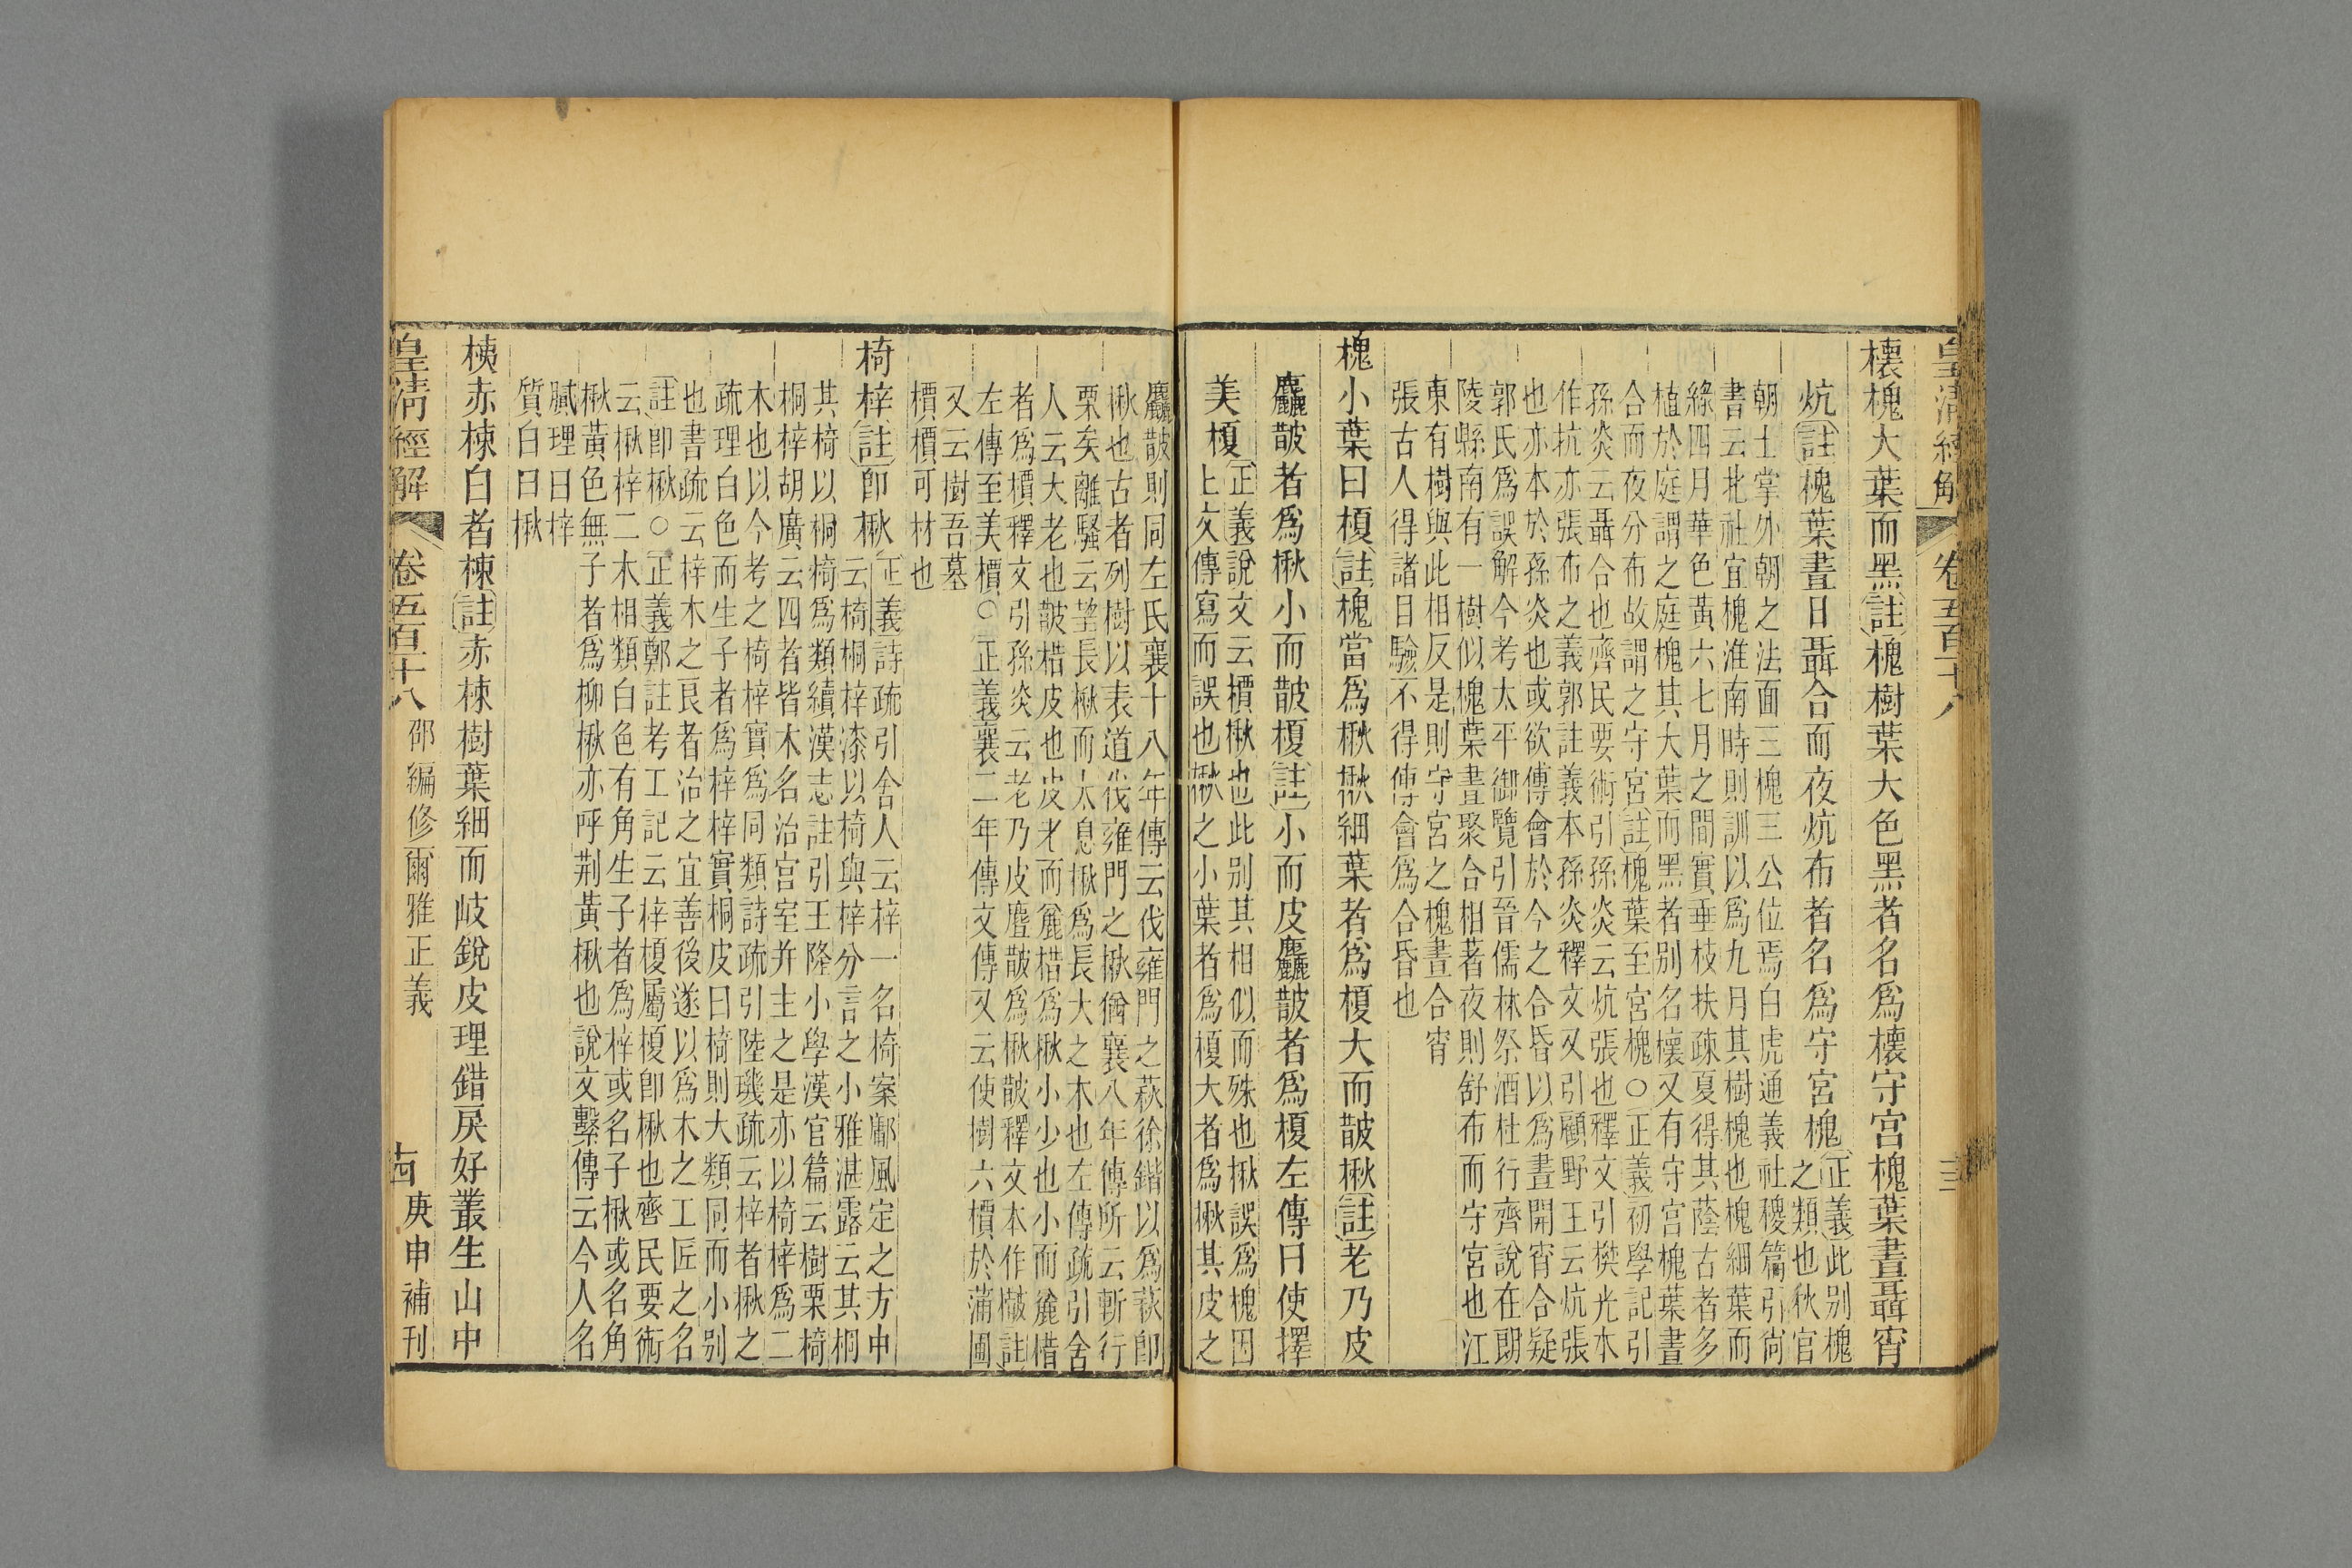 皇清經解
卷五百十八
櫰槐大葉而黑註槐樹葉大色黑者名爲櫰守宮槐葉晝聶宵
炕註槐葉晝日聶合而夜炕布者名爲守宮槐
正義此別槐
之類也秋官
朝士掌外朝之法面三槐三公位焉白虎通義社稷篇引尙
書云北社宜槐淮南時則訓以爲九月其樹槐也槐細葉而
綠四月華色黃六七月之間實垂枝扶疎夏得其蔭古者多
植於庭謂之庭槐其大葉而黑者別名櫰又有守宮槐葉晝
合而夜分布故謂之守宮註槐葉至宮槐○正義初學記引
孫炎云聶合也齊民要術引孫炎云炕張也釋文引樊光本
作抗亦張布之義郭註義本孫炎釋文又引顧野王云炕張
也亦本於孫炎也或欲傅會於今之合昏以爲晝開宵合疑
郭氏爲誤解今考太平御覽引晉儒林祭酒杜行齊說在朗
陵縣南有一樹似槐葉晝聚合相著夜則舒布而守宮也江
東有樹與此相反是則守宮之槐晝合宵
張古人得諸目驗不得傅會爲合昏也
槐小葉曰榎註槐當爲楸楸細葉者爲榎大而皵楸註老乃皮
麤皵者爲楸小而皵榎註小而皮麤皵者爲榎左傳曰使擇
美榎
正義說文云檟楸也此別其相似而殊也楸誤爲槐因
上文傳寫而誤也楸之小葉者爲榎大者爲楸其皮之
麤皵則同左氏襄十八年傳云伐雍門之萩徐鍇以爲萩卽
楸也古者列樹以表道伐雍門之楸猶襄八年傳所云斬行
栗矣離騷云望長楸而太息楸爲長大之木也左傳疏引舍
人云大老也皵㯊皮也皮老而麄㯊爲楸小少也小而麄㯊
者爲檟釋文引孫炎云老乃皮麤皵爲楸皵釋文本作樕註
左傳至美檟○正義襄二年傳文傳又云使樹六檟於蒲圃
又云樹吾墓
檟檟可材也
椅梓註卽楸
正義詩疏引舍人云梓一名椅案鄘風定之方中
云椅桐梓漆以椅與梓分言之小雅湛露云其桐
其椅以桐椅爲類續漢志註引王隆小學漢官篇云樹栗椅
桐梓胡廣云四者皆木名治宮室幷主之是亦以椅梓爲二
木也以今考之椅梓實爲同類詩疏引陸璣疏云梓者楸之
疏理白色而生子者爲梓梓實桐皮曰椅則大類同而小別
也書疏云梓木之良者治之宜善後遂以爲木之工匠之名
註卽楸○正義鄭註考工記云梓榎屬榎卽楸也齊民要術
云楸梓二木相類白色有角生子者爲梓或名子楸或名角
楸黃色無子者爲柳楸亦呼荊黃楸也說文繫傳云今人名
膩理曰梓
質白曰楸
桋赤楝白者楝註赤楝樹葉細而岐銳皮理錯戾好叢生山中
皇清經解
卷五百十八
邵編修爾雅正義
庚申補刊